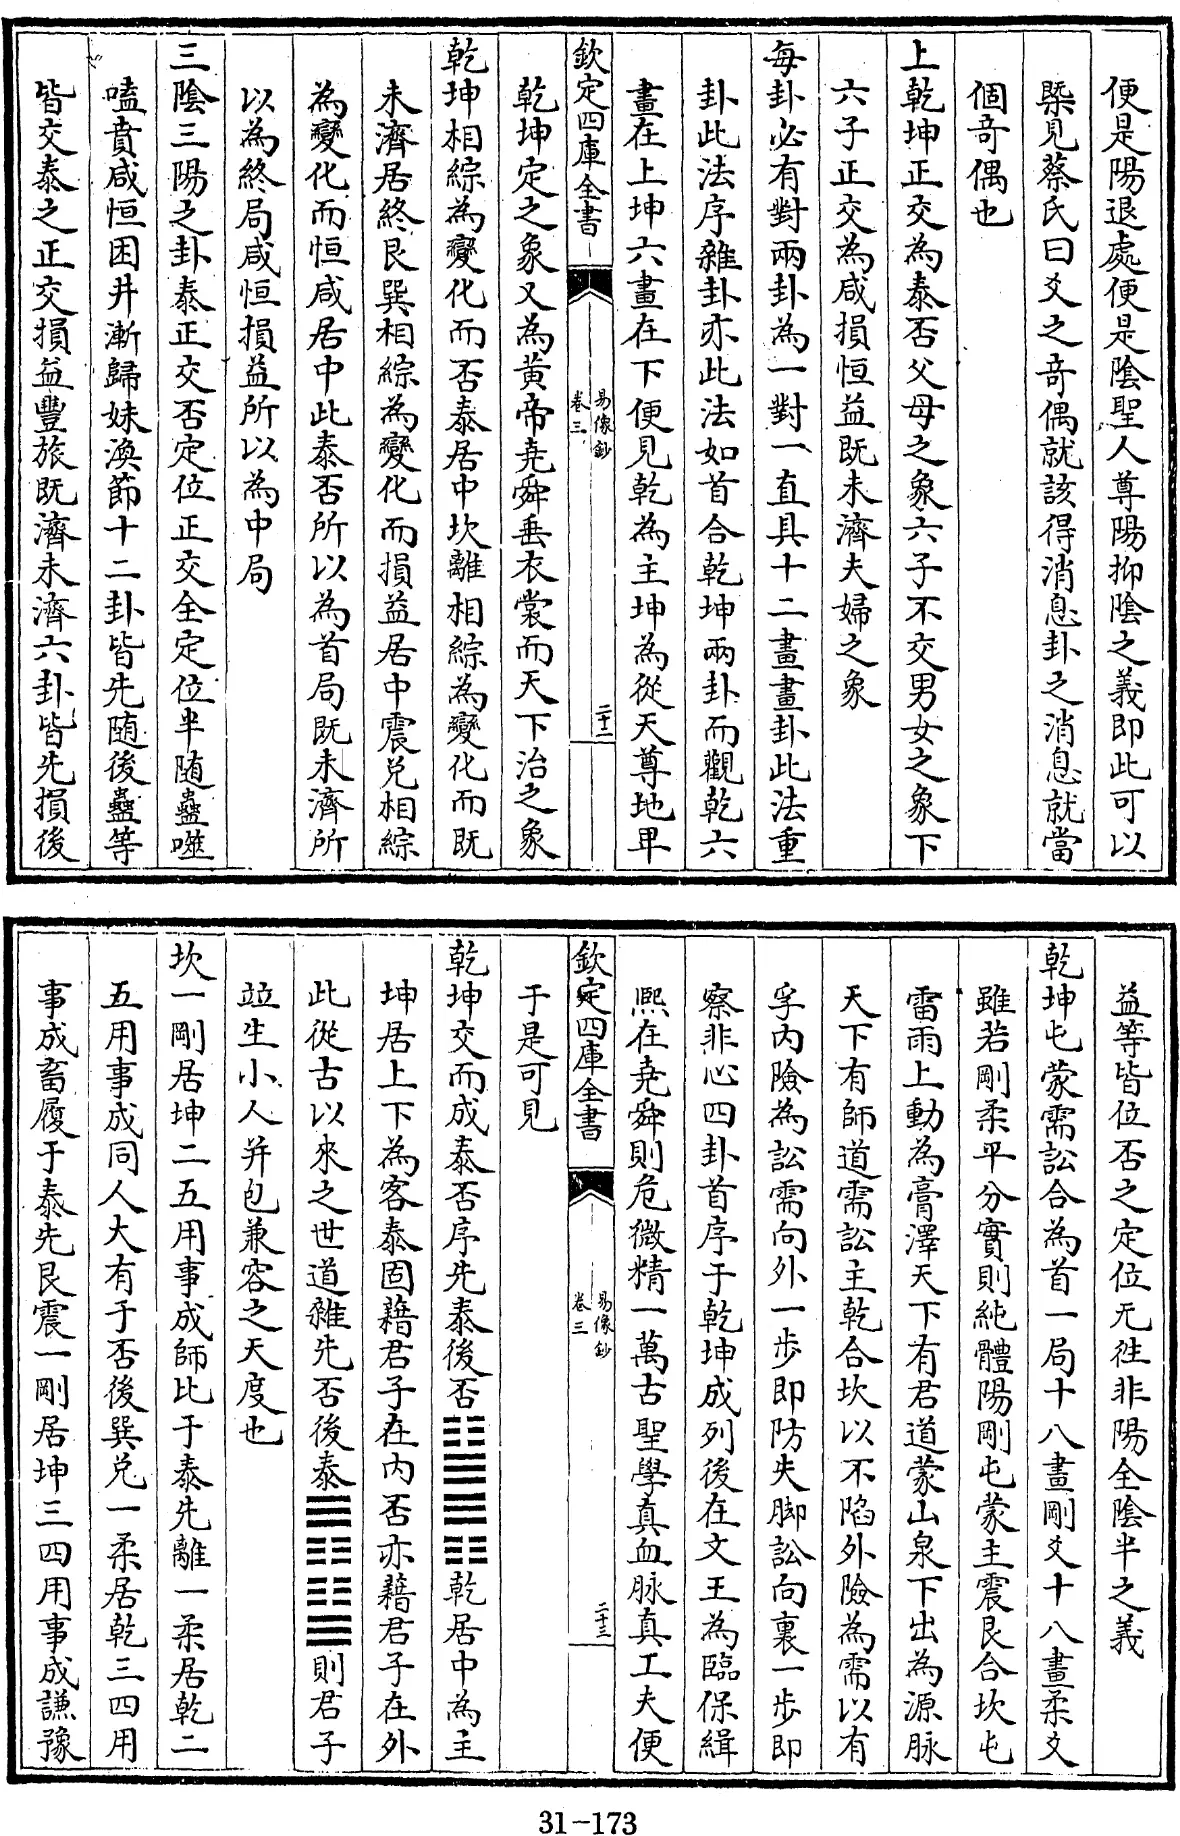 便是陽退處便是陰聖人尊陽抑陰之義即此可以
槩見蔡氏曰爻之竒偶就該得消息卦之消息就當
個竒偶也
上乾坤正交為泰否父母之象六子不交男女之象下
六子正交為咸損恒益既未濟夫婦之象
每卦必有對兩卦為一對一直具十二畫畫卦此法重
卦此法序雜卦亦此法如首合乾坤兩卦而觀乾六
畫在上坤六畫在下便見乾為主坤為從天尊地卑
欽定四庫全書
易像鈔
卷三
二十二
乾坤定之象又為黄帝堯舜垂衣裳而天下治之象
乾坤相綜為變化而否泰居中坎離相綜為變化而既
未濟居終艮巽相綜為變化而損益居中震兌相綜
為變化而恒咸居中此泰否所以為首局既未濟所
以為終局咸恒損益所以為中局
三陰三陽之卦泰正交否定位正交全定位半随蠱噬
嗑賁咸恒困井漸歸妹渙節十二卦皆先随後蠱等
皆交泰之正交損益豐旅既濟未濟六卦皆先損後
益等皆位否之定位无徃非陽全陰半之義
乾坤屯蒙需訟合為首一局十八畫剛爻十八畫柔爻
雖若剛柔平分實則純體陽剛屯蒙主震艮合坎屯
雷雨上動為膏澤天下有君道蒙山泉下出為源脉
天下有師道需訟主乾合坎以不陷外險為需以有
孚内險為訟需向外一步即防失脚訟向裏一步即
察非心四卦首序于乾坤成列後在文王為臨保緝
熈在堯舜則危微精一萬古聖學真血脉真工夫便
欽定四庫全書
易像鈔
卷三
二十三
于是可見
乾坤交而成泰否序先泰後否☷☰☰☷乾居中為主
坤居上下為客泰固藉君子在内否亦藉君子在外
此從古以來之世道雜先否後泰☰☷☷☰則君子
竝生小人并包兼容之天度也
坎一剛居坤二五用事成師比于泰先離一柔居乾二
五用事成同人大有于否後巽兌一柔居乾三四用
事成畜履于泰先艮震一剛居坤三四用事成謙豫
31-173